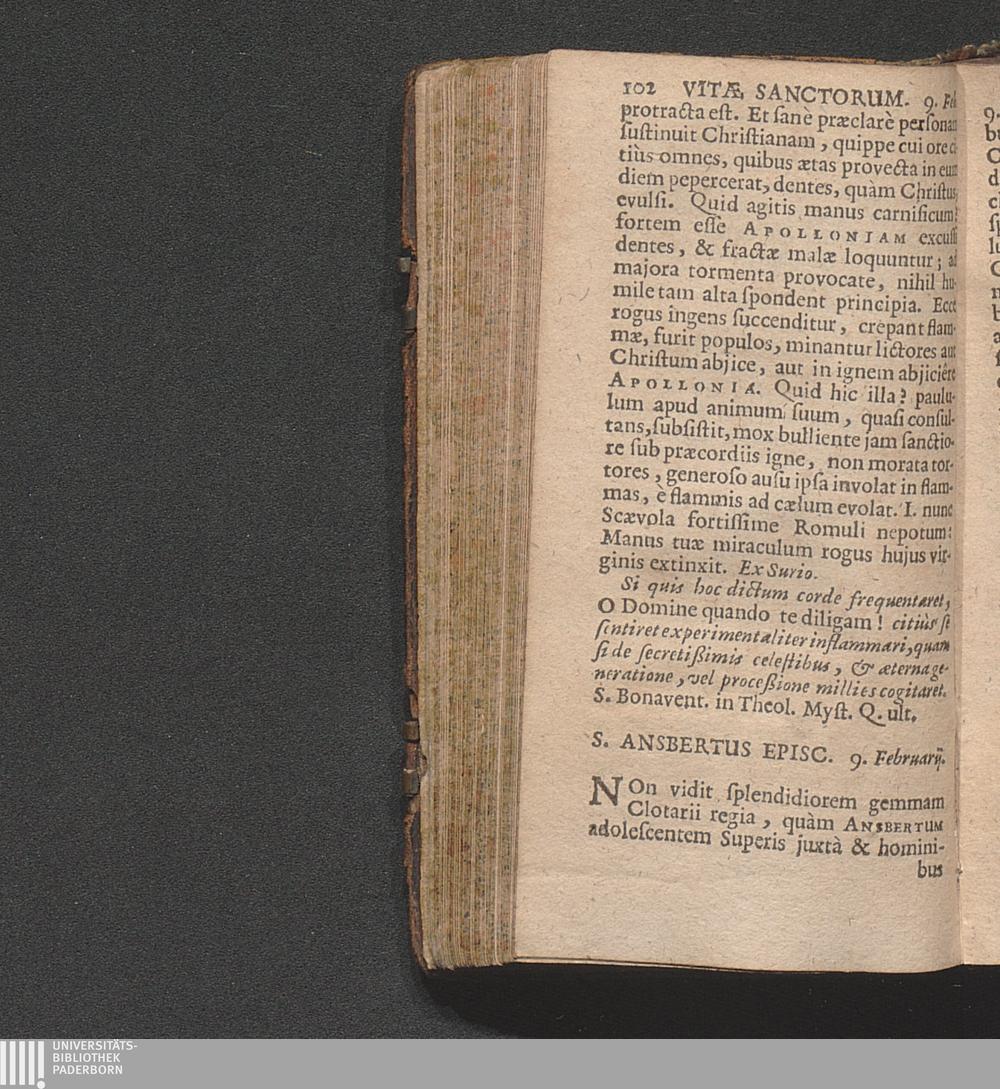 102 VITÆ SANCTORUM. 9. Feb
protracta est. Et sanè præclarè personam
sustinuit Christianam, quippe cui ore ci-
tiùs omnes, quibus ætas provecta in eum
diem pepercerat, dentes, quàm Christus
evulsi. Quid agitis manus carnificum?
fortem esse APOLLONIAM excussi
dentes, & fractæ malæ loquuntur; ad
majora tormenta provocate, nihil hu-
mile tam alta spondent principia. Ecce
rogus ingens succenditur, crepant flam-
mæ, furit populos, minantur lictores aut
Christum abjice, aut in ignem abjiciêre
APOLLONIA. Quid hic illa? paulu-
lum apud animum suum, quasi consul-
tans, subsistit, mox bulliente jam sanctio-
re sub præcordiis igne, non morata tor-
tores, generoso ausu ipsa involat in flam-
mas, è flammis ad cælum evolat. I. nunc
Scævola fortissime Romuli nepotum:
Manus tuæ miraculum rogus hujus vir-
ginis extinxit. Ex Surio.
Si quis hoc dictum corde frequentaret,
O Domine quando te diligam! citiùs se
sentiret experimentaliter inflammari, quam
si de secretißimis celestibus, & æterna ge-
neratione, vel proceßione millies cogitaret.
S. Bonavent. in Theol. Myst. Q. ult.
S. ANSBERTUS EPISC. 9. Februarij.
NOn vidit splendidiorem gemmam
Clotarii regia, quàm ANSBERTUM
adolescentem Superis juxtà & homini-
bus
UNIVERSITÄTS-
BIBLIOTHEK
PADERBORN